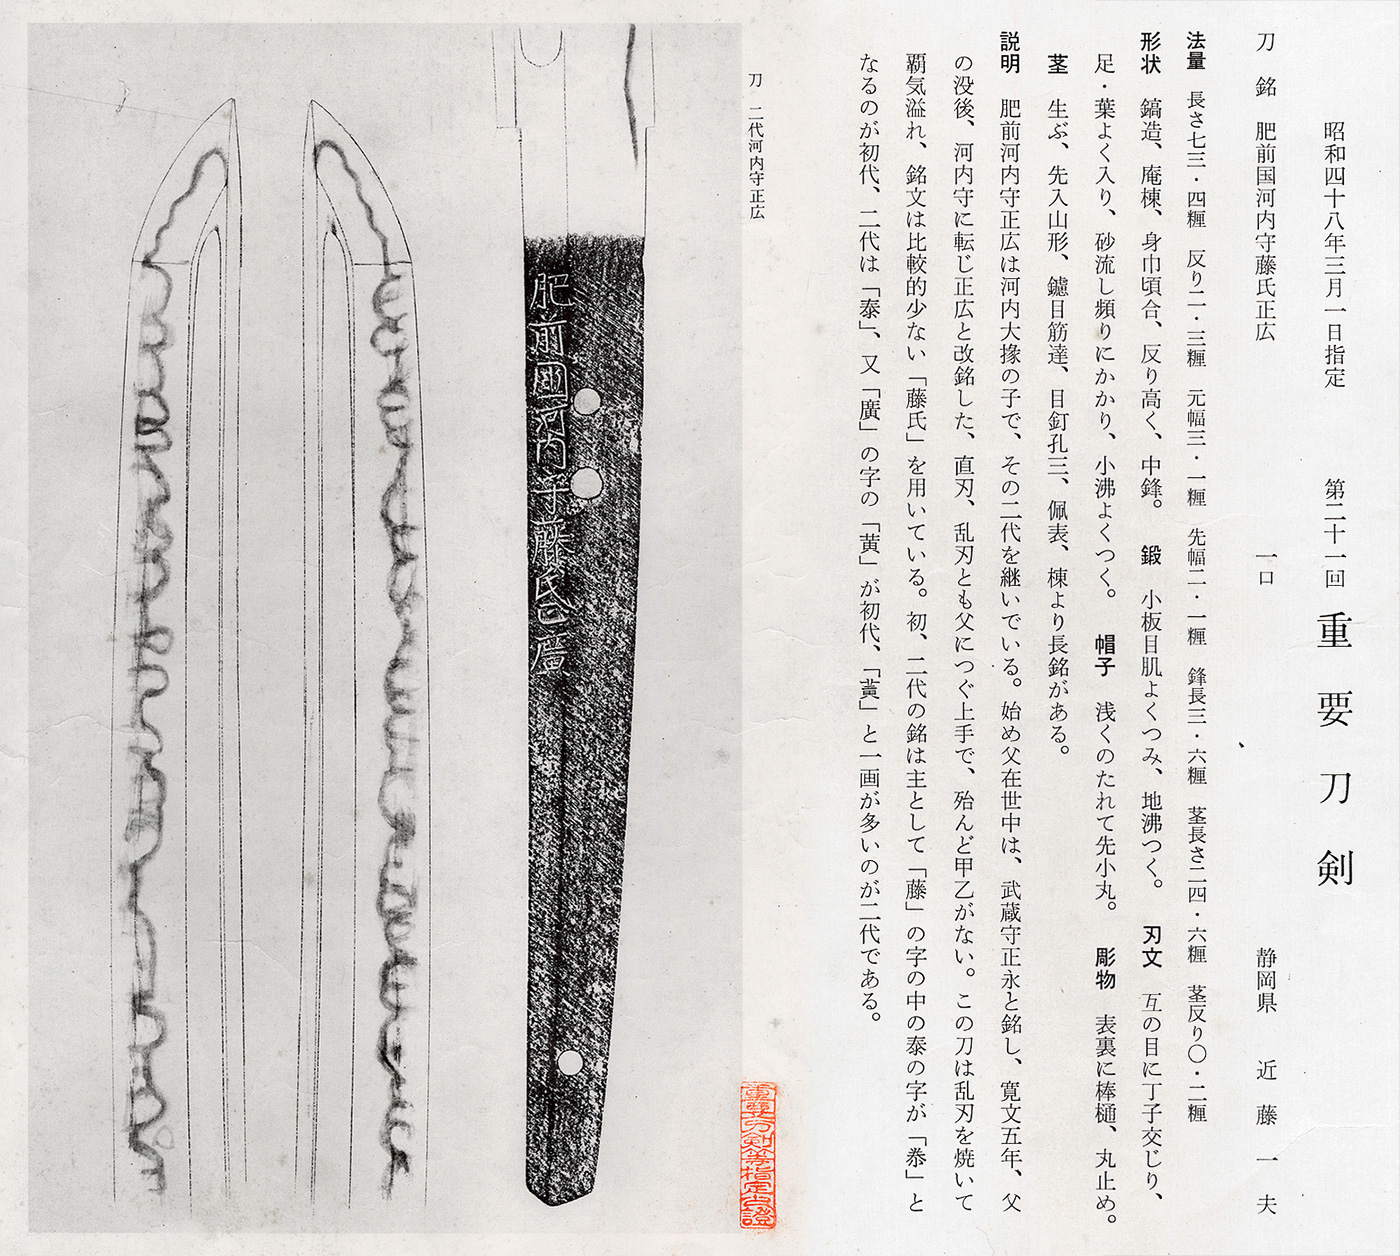 昭和四十八年三月一日指定　第二十一回　重要刀剣
刀　銘　肥前国河内守藤氏正広　一口　静岡県　近藤一夫
法量　長さ七三・四糎　反り二・三糎　元幅三・一糎　先幅二・一糎　鋒長三・六糎　茎長さ二四・六糎　茎反り〇・二糎
形状　鎬造、庵棟、身巾頃合、反り高く、中鋒。　鍛　小板目肌よくつみ、地沸つく。　刃文　互の目に丁子交じり、
足・葉よく入り、砂流し頻りにかかり、小沸よくつく。　帽子　浅くのたれて先小丸。　彫物　表裏に棒樋、丸止め。
茎　生ぶ、先入山形、鑢目筋違、目釘孔三、佩表、棟より長銘がある。
説明　肥前河内守正広は河内大掾の子で、その二代を継いでいる。始め父在世中は、武蔵守正永と銘し、寛文五年、父
の没後、河内守に転じ正広と改銘した、直刃、乱刃とも父につぐ上手で、殆んど甲乙がない。この刀は乱刃を焼いて
覇気溢れ、銘文は比較的少ない「藤氏」を用いている。初、二代の銘は主として「藤」の字の中の泰の字が「㳟」と
なるのが初代、二代は「泰」、又「廣」の字の「黄」が初代、「黃」と一画が多いのが二代である。
刀　二代河内守正広
肥前國河内守藤氏正廣
重要刀剣等指定之證